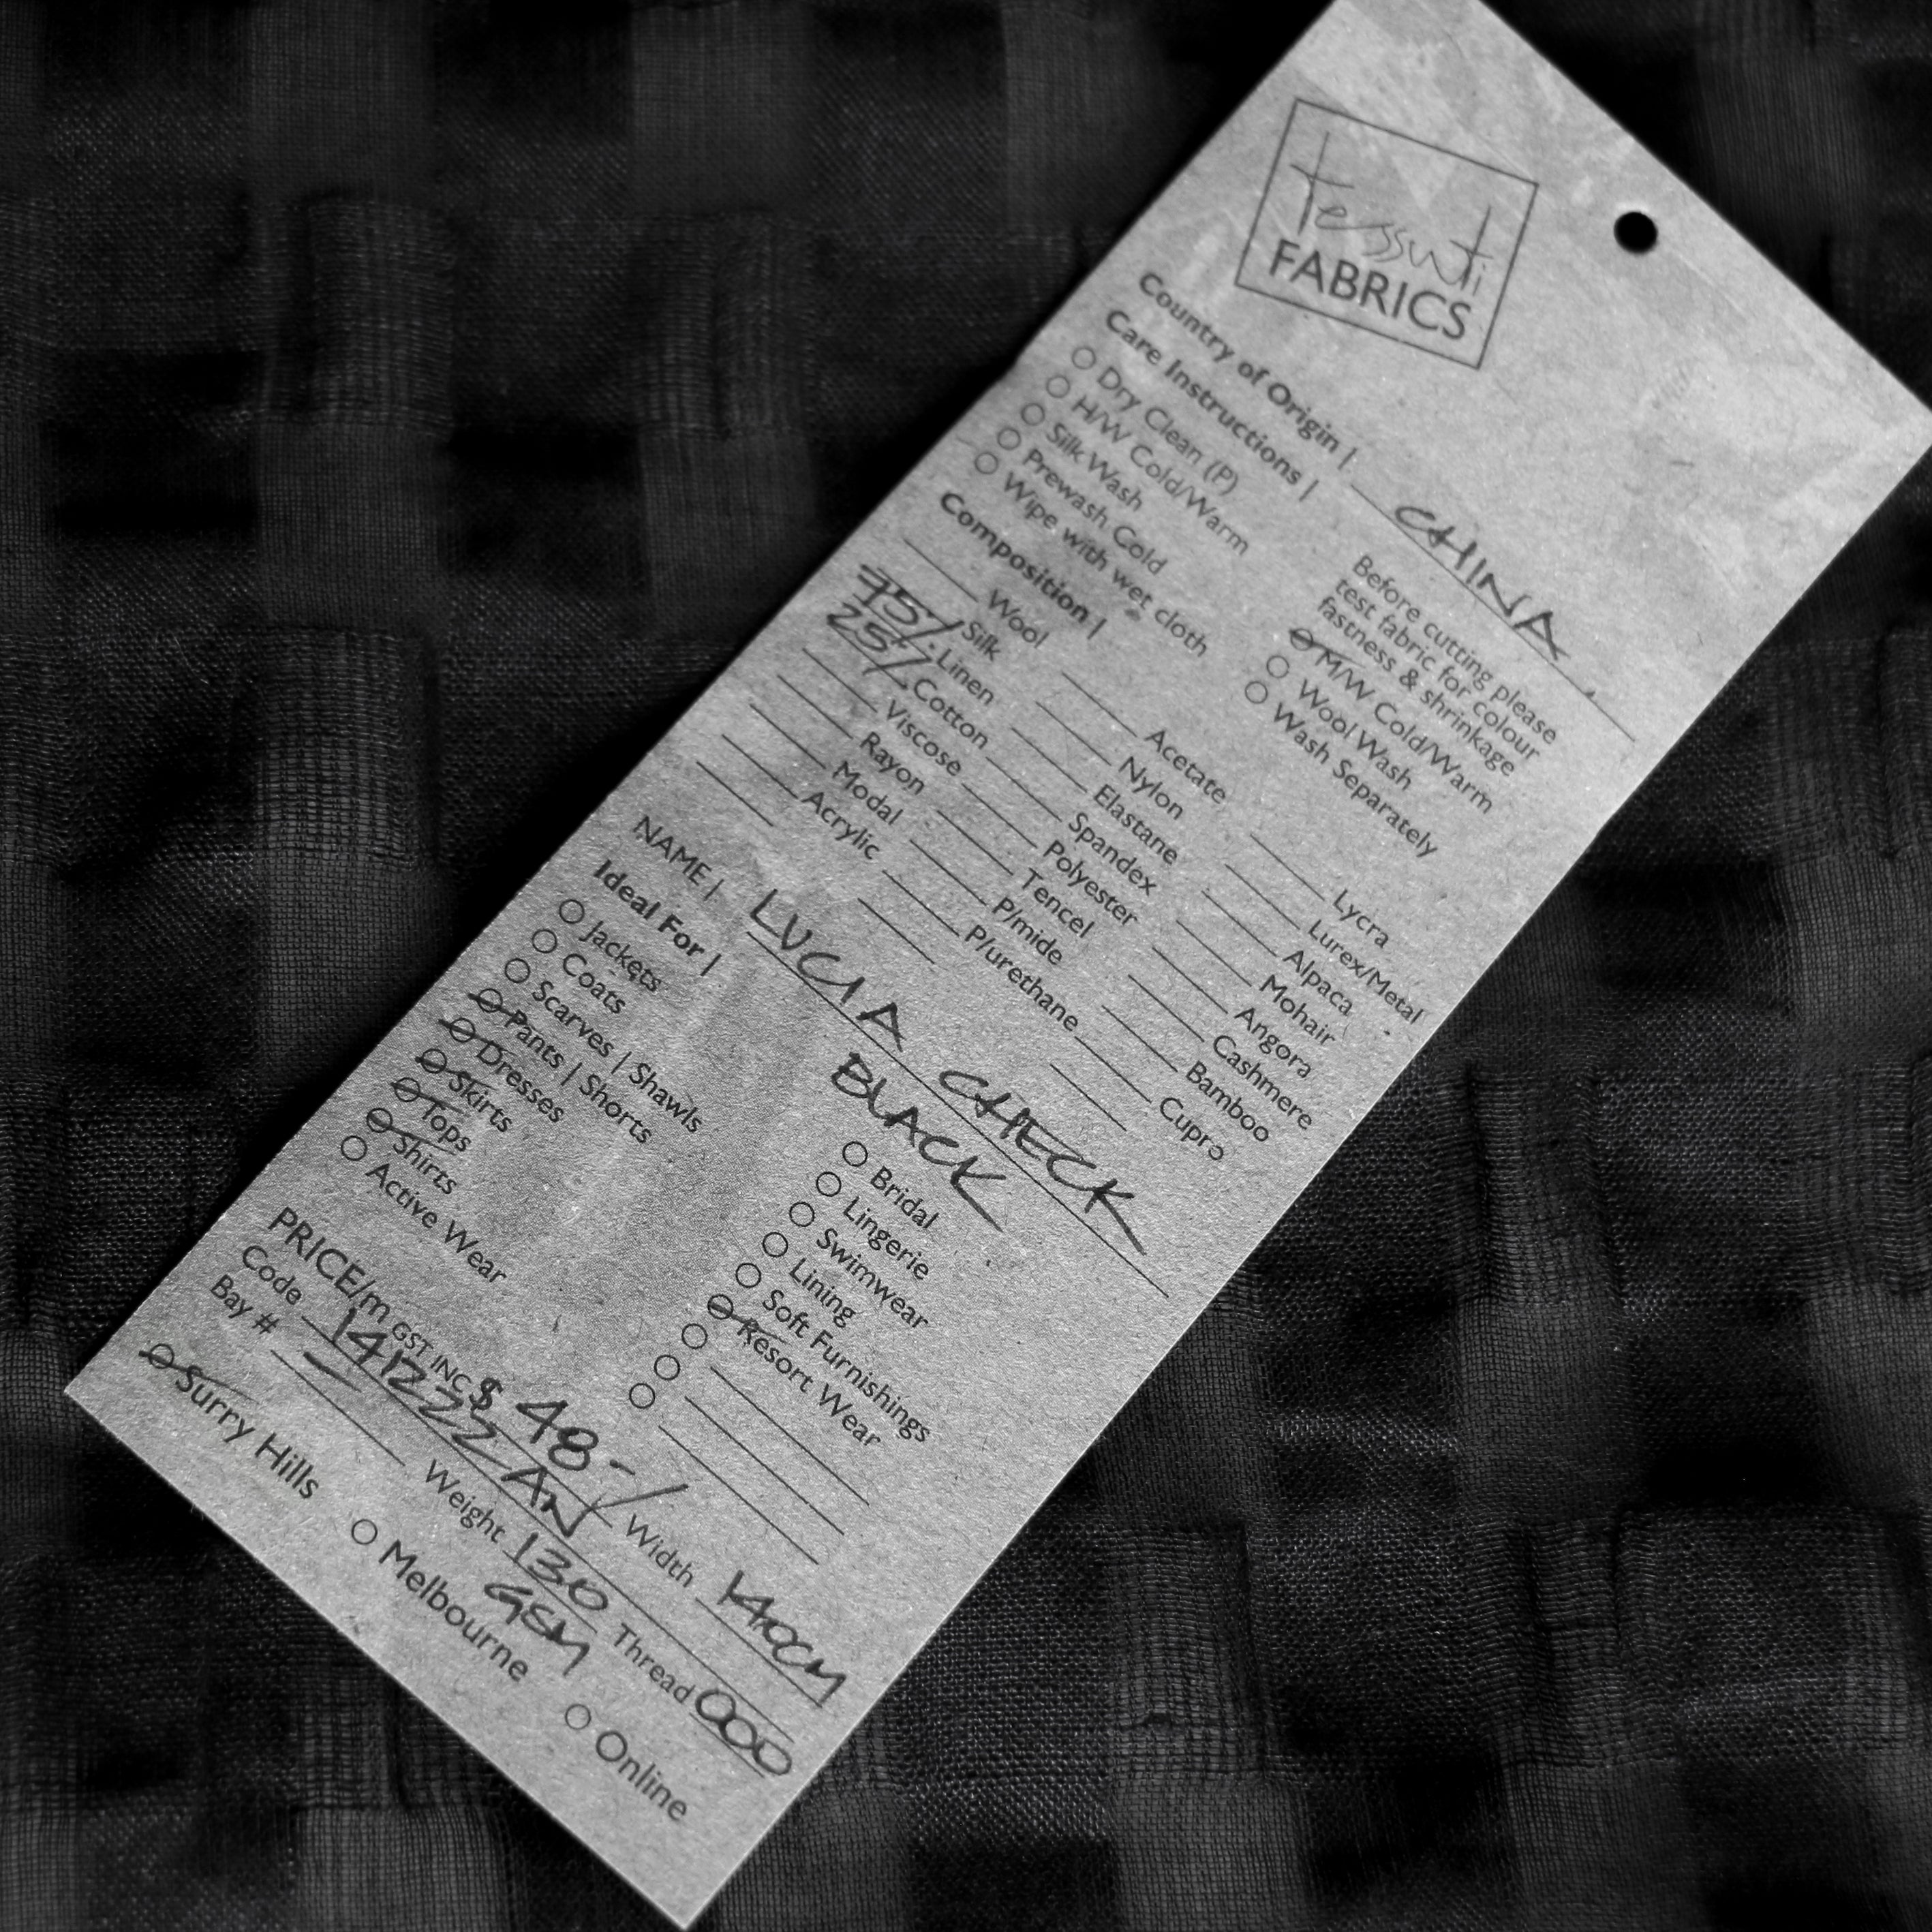 tessuti
FABRICS
Country of Origin | CHINA
Care Instructions |
Dry Clean (P)
H/W Cold/Warm
Silk Wash
Prewash Cold
Wipe with wet cloth
Before cutting please
test fabric for colour
fastness & shrinkage
M/W Cold/Warm
Wool Wash
Wash Separately
Composition |
Wool
Silk
75% Linen
25% Cotton
Viscose
Rayon
Modal
Acrylic
Acetate
Nylon
Elastane
Spandex
Polyester
Tencel
P/mide
P/urethane
Lycra
Lurex/Metal
Alpaca
Mohair
Angora
Cashmere
Bamboo
Cupro
NAME | LUCIA CHECK
BLACK
Ideal For |
Jackets
Coats
Scarves | Shawls
Pants | Shorts
Dresses
Skirts
Tops
Shirts
Active Wear
Bridal
Lingerie
Swimwear
Lining
Soft Furnishings
Resort Wear
PRICE/m GST INC $ 48-/
Code Width 140CM
Bay # - Weight 130 GSM Thread 000
Surry Hills Melbourne Online